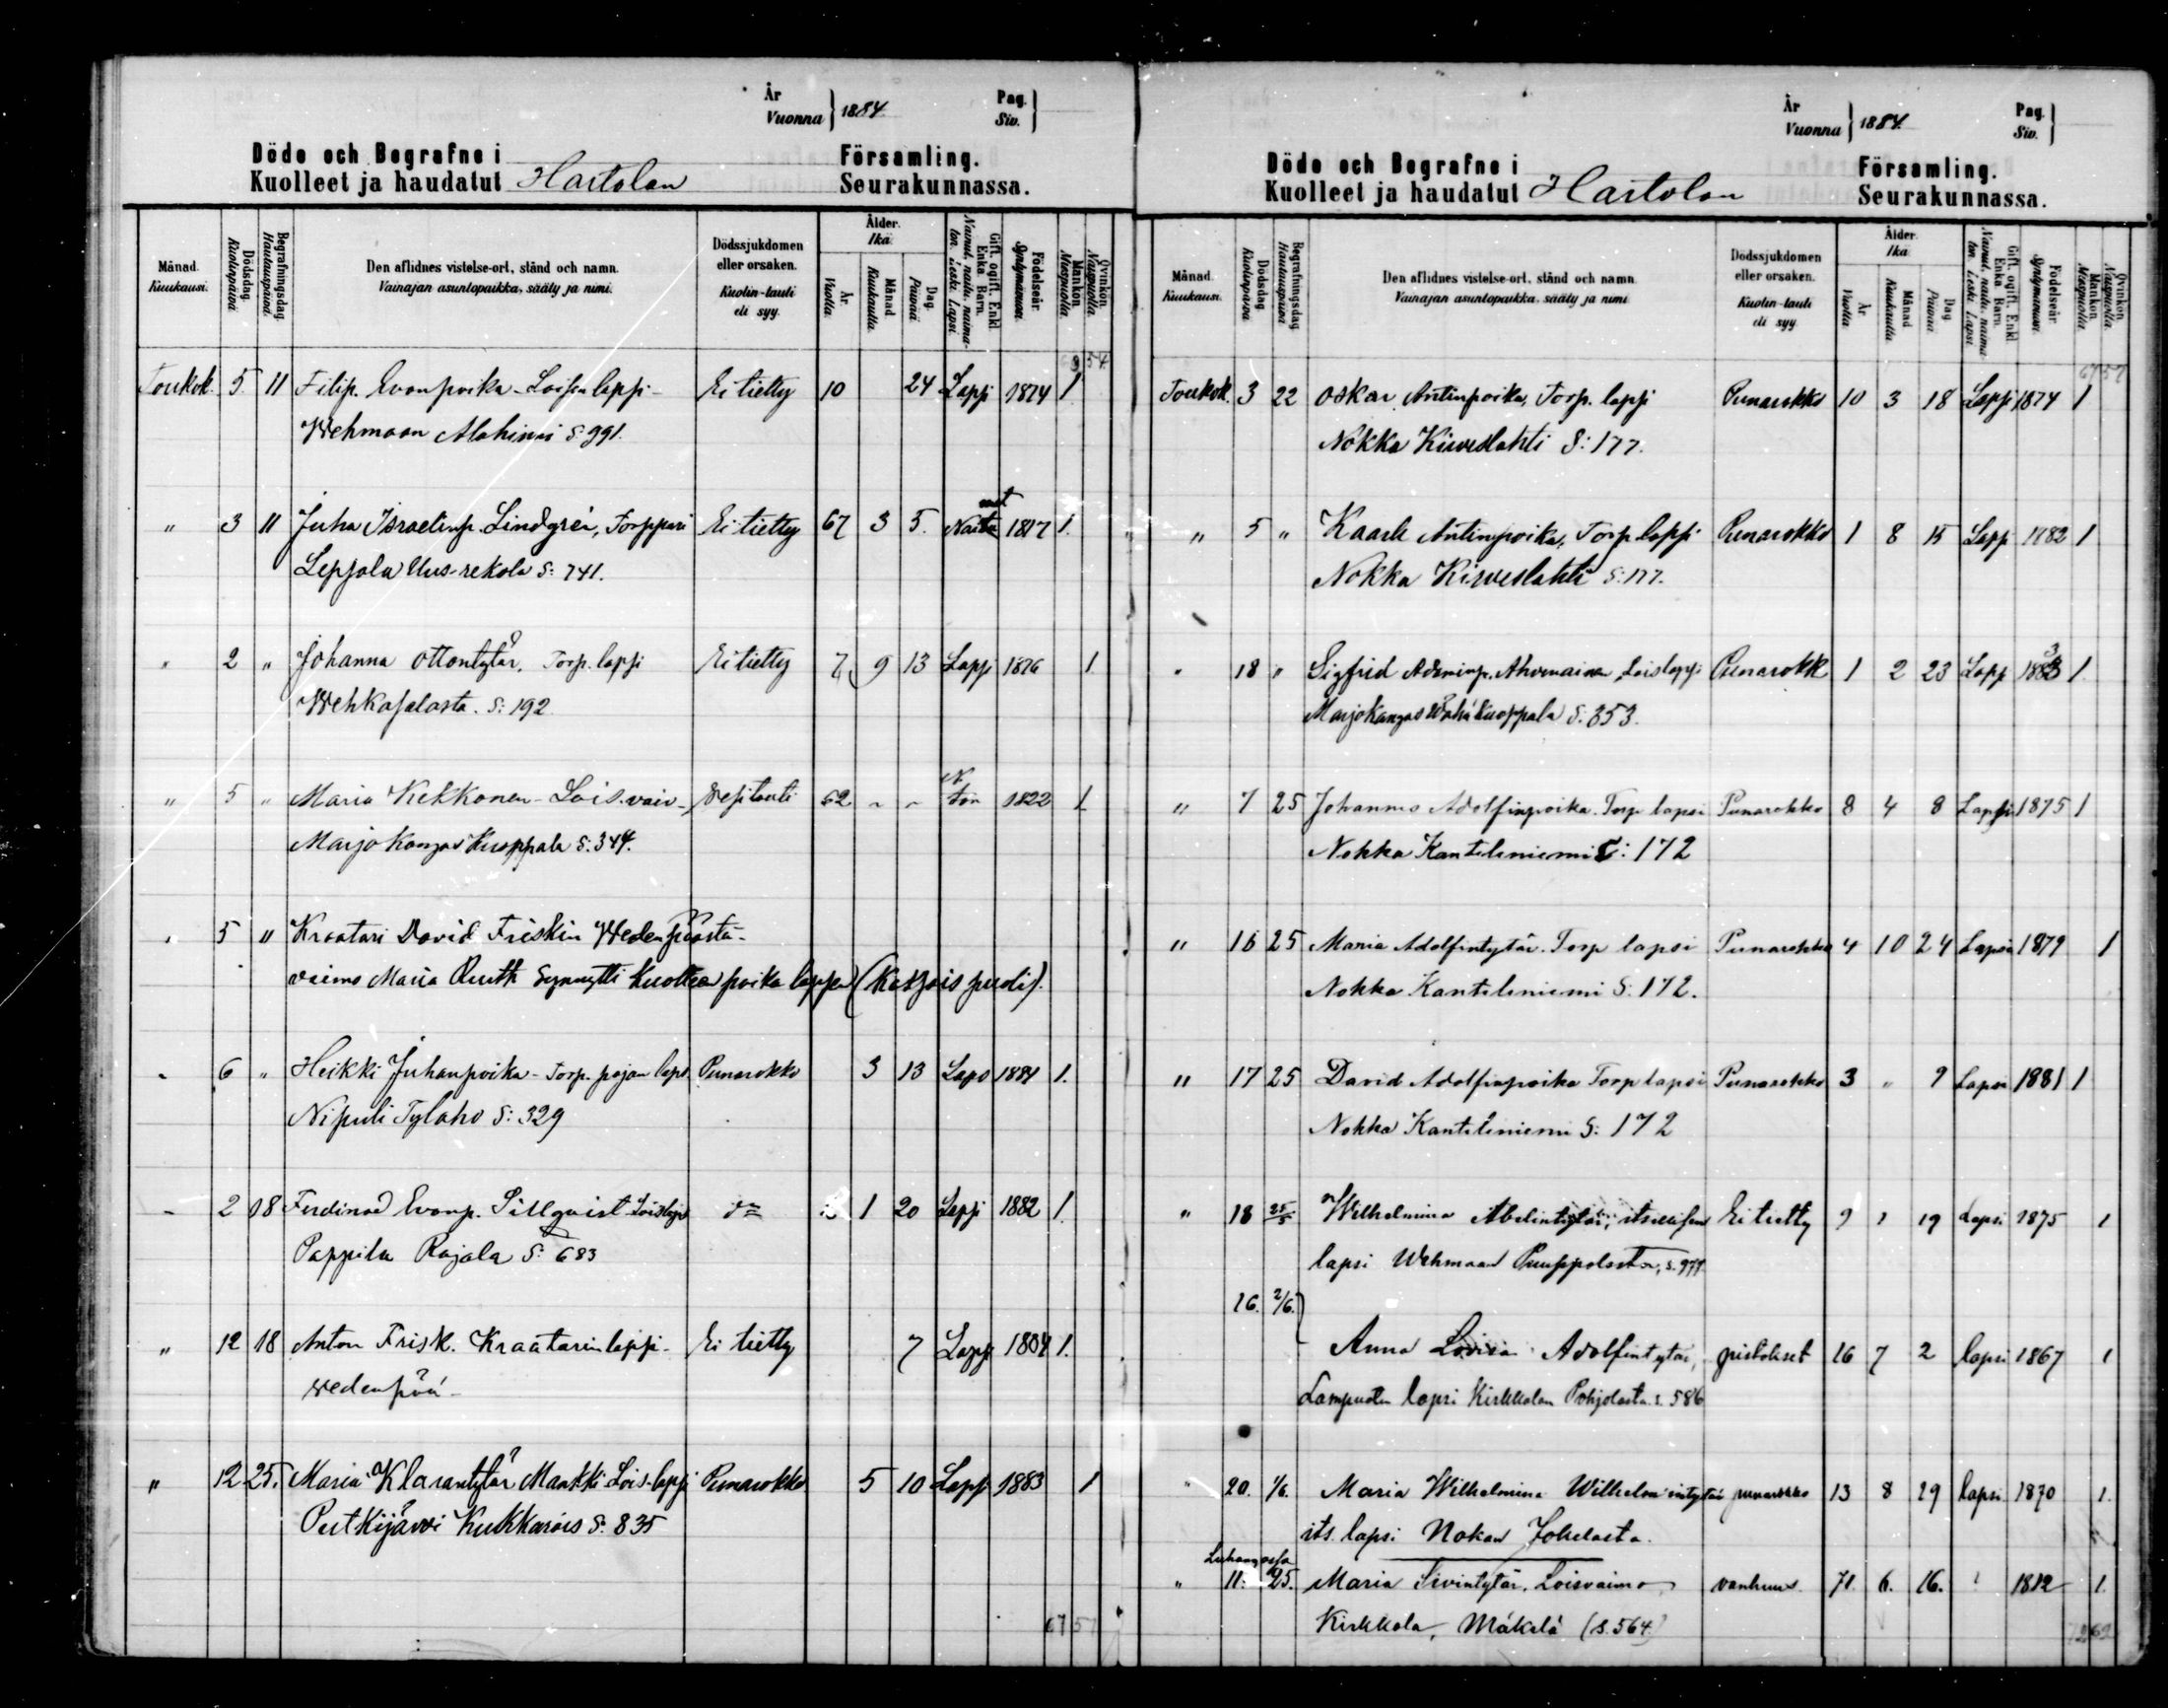 År
Vuonna } 1884.
Pag.
Siv. }
Döde och Begrafne i
Kuolleet ja haudatut Hartolan
Församling.
Seurakunnassa.
Månad.
Kuukausi.
Dödsdag.
Kuolinpäivä.
Begrafningsdag.
Hautauspäivä.
Den aflidnes vistelse-ort, stånd och namn.
Vainajan asuntopaikka, sääty ja nimi.
Dödssjukdomen
eller orsaken.
Kuolin-tauti
eli syy.
Ålder.
Ikä.
År.
Vuotta.
Månad.
Kuukautta.
Dag.
Päivää.
Gift, ogift, Enkl
Enka Barn.
Nainut, naitu, naima-
ton. Leski. Lapsi.
Födelseår.
Syntymävuosi.
Mankön.
Miespuolia.
Qvinkön.
Naispuolia.
Toukok. 5 11 Filip. Evanpoika - Loisen lapsi - Ei tietty 10 24 Lapsi 1874 1
Wehmaan S: 991.
" 3 11 Juha Israelinp. Lindgrén, Torppari Ei tietty 67 3 5. 1817 1.
Leppola Uus-rekola S: 741.
" 2 " Johanna Ottontytär, Torp. lapsi Ei tietty 7 9 13 Lapsi 1876 1
S: 192.
" 5 " Maria Kekkonen - Lois. vaiv - Vesitauti 62 " " N ton 1822 1
Marjokangas Kuoppala S: 344.
" 5 " Kraatari David Friskin Wedenpäästä -
vaimo Maria Ruuth Synnytti Kuolleen poika lapsen
" 6 " Heikki Juhanpoika - Torp. pojan laps. Punarokko 3 13 Laps 1884 1.
Nipuli Tylaho S: 329
" 2 18 Ferdinad Evanp. Sillqvist Loislaps do 1 20 Lapsi 1882 1
Pappila Rajala S: 683
" 12 18 Anton Frisk. Kraatarin lapsi - Ei tietty 7 Lapsi 1884 1.
Vedenpää -
" 12 25. Maria Klarantytär Maakki Lois-lapsi Punarokko 5 10 Lapsi 1883 1
Putkijärvi S: 835
67 57
År
Vuonna } 1884.
Pag.
Siv. }
Döde och Begrafne i
Kuolleet ja haudatut Hartolan
Församling.
Seurakunnassa.
Månad.
Kuukausi.
Dödsdag.
Kuolinpäivä.
Begrafningsdag.
Hautauspäivä.
Den aflidnes vistelse-ort, stånd och namn.
Vainajan asuntopaikka, sääty ja nimi.
Dödssjukdomen
eller orsaken.
Kuolin-tauti
eli syy.
Ålder.
Ikä.
År.
Vuotta.
Månad.
Kuukautta.
Dag.
Päivää.
Gift, ogift, Enkl
Enka Barn.
Nainut, naitu, naima-
ton. Leski. Lapsi.
Födelseår.
Syntymävuosi.
Mankön.
Miespuolia.
Qvinkön.
Naispuolia.
67 57
Toukok. 3 22 Oskar Antinpoika, Torp. lapsi Punarokko 10 3 18 Lapsi 1874 1
Nokka Kirveslahti S: 177.
" 5 " Kaarle Antinpoika, Torp lapsi Punarokko 1 8 15 Laps 1882 1
Nokka Kirveslahti S: 177.
" 18 " Sigfrid Adaminp. Ahvenainen, Loislapsi Punarokk 1 2 23 Laps 1883 1.
Marjokangas Wähä Kuoppala S: 353.
" 7 25 Johannes Adolfinpoika. Torp lapsi Punarokko 8 4 8 Lapsi 1875 1
Nokka Kanteleniemi S: 172
" 16 25 Maria Adolfintytär. Torp lapsi Punarokko 4 10 24 Lapsi 1879 1
Nokka Kanteleniemi S: 172.
" 17 25 David Adolfinpoika Torp lapsi Punarokko 3 " 9 Lapsi 1881 1
Nokka Kanteleniemi S: 172
" 18 25/5 Wilhelmina Abelintytär, itsellisen Ei tietty 9 1 19 Lapsi 1875 1
lapsi Wehmaan Puuppolasta, s. 977
16. 2/6. } Anna Lovisa Adolfintytär, pistokset 16 7 2 lapsi 1867 1
Lampuodin lapsi Kirkkolan Pohjolasta s. 586
" 20. 1/6. Maria Wilhelmina Wilhelmintytär punarokko 13 8 29 lapsi 1870 1.
its. lapsi Nokan Jokelasta.
Luhangassa
" 11: 25. Maria Sivintytär, Loisvaimo vanhuus 71. 6. 16. 1812 1.
Kirkkola, Mäkelä (s. 564.)